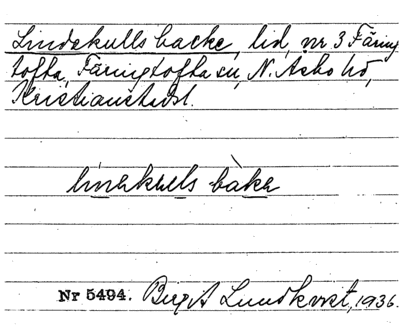 Lindekulls backe, lid, nr 3 Färing
tofta, Färingtofta sn, N. Åsbo hd,
Kristianstads l.
linekulls bàka
Nr 5494. Birgit Lundkvist, 1936.